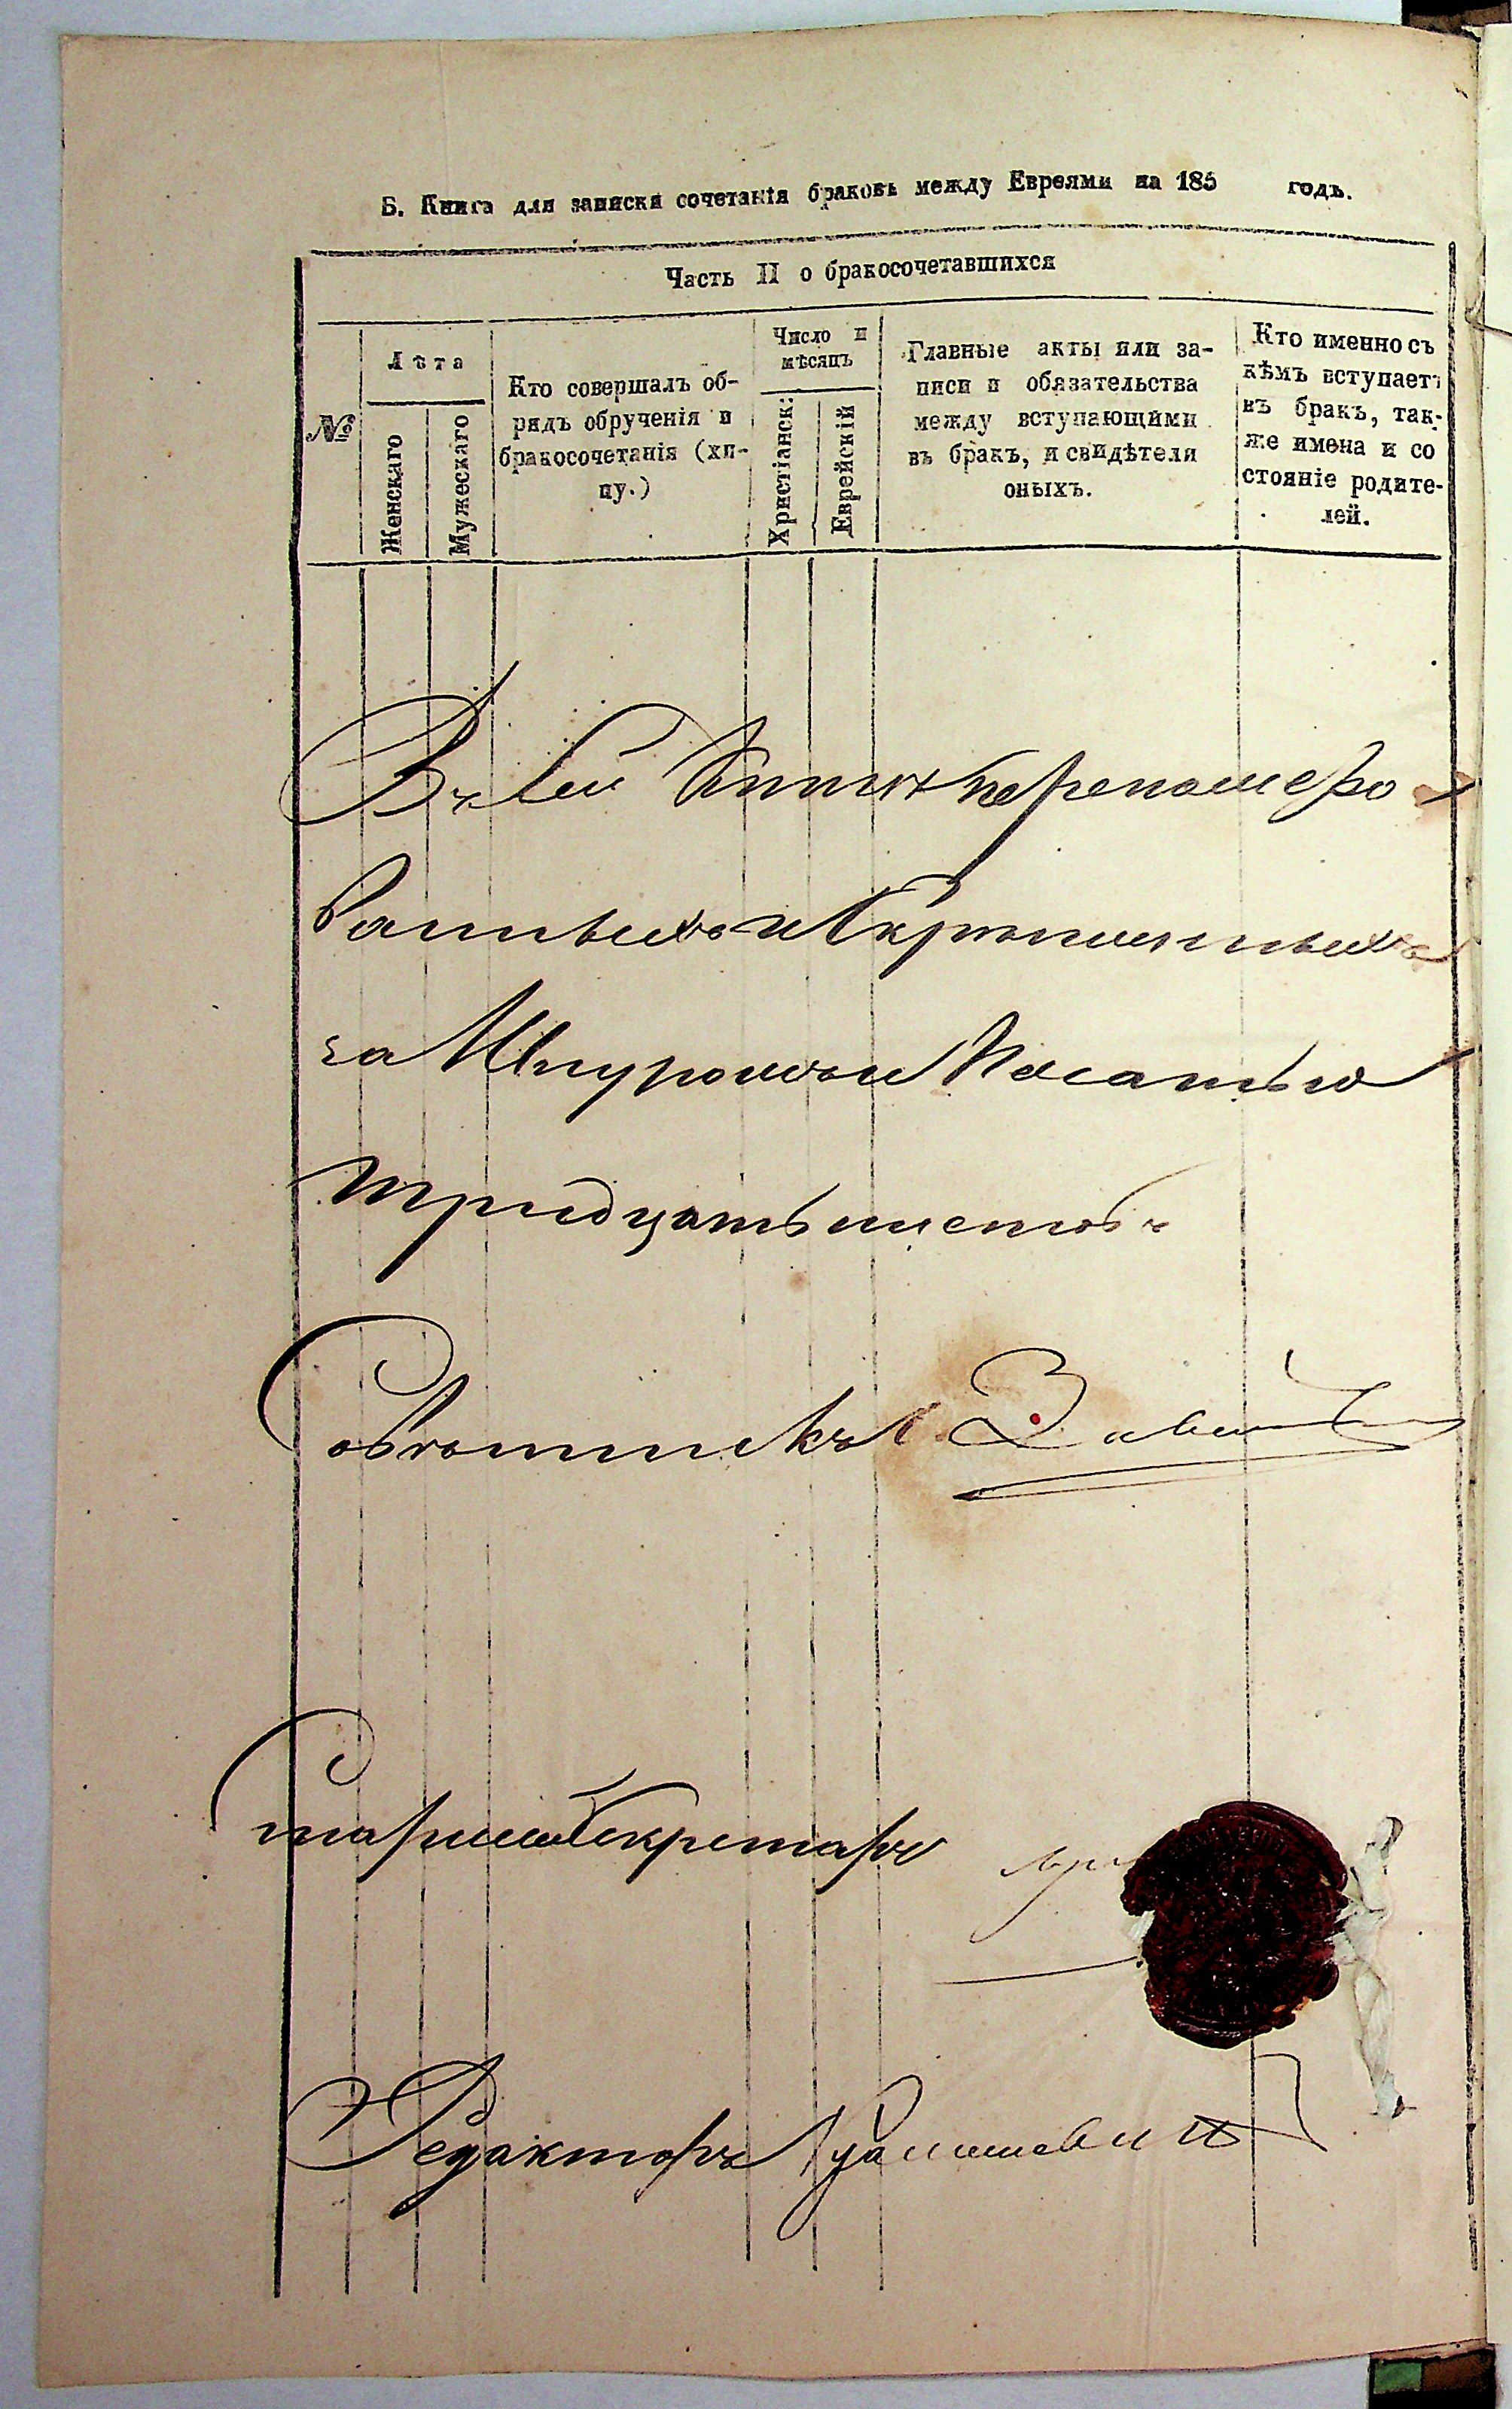 Б. Книга для записки сочетанія браковъ между Евреями на 185 годъ.
Часть II о бракосочетавшихся
№
Лѣта
Женскаго
Мужескаго
Кто совершалъ об-
рядъ обрученія и
бракосочетанія (хп-
пу.)
Число и
мѣсяцъ
Христіанск:
Еврейскій
Главные акты или за-
писи и обязательства
между вступающими
въ бракъ, и свидѣтели
оныхъ.
Кто именно съ
кѣмъ вступаетъ
въ бракъ, так-
же имена и со
стояніе родите-
лей.
Въ сей Книгѣ перенумеро
ванныхъ и скрѣпленныхъ
за Шнуромъ и Печатью
тридцать листовъ
Совѣтникъ
Старшій Секретарь
Редакторъ